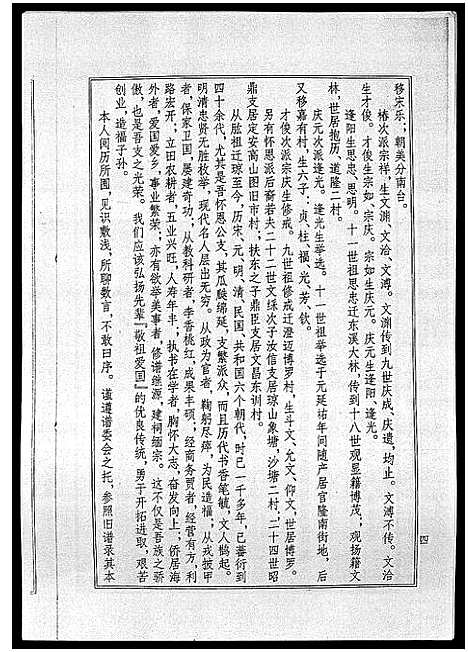 移宋乐；朝美分南台。
椿次派宗祥，生文渊、文治、文溥。文渊传到九世庆成、庆遣，均止。文溥不传。文治
生才俊。才俊生宗如、宗庆。宗如生庆元。庆元生逢阳、逢光。
逢阳生思忠、思明。十一世祖思忠迁东溪大林，传到十八世观显籍博茂；观扬籍文
林，世居抱历、道隆二村。
庆元次派逢光。逢光生举选。十一世祖举选于元延祐年间随产居官隆南街地，后
又移嘉有村，生六子：贞、柱、福、光、芳、钦。
才俊次派宗庆生修戒。九世祖修戒迁澄迈博罗村，生斗文、允文、仰文，世居博罗。
另有怀恩派后裔若夫二十二世文练次子汝信支居琼山象塘，沙塘二村，二十四世昭
鼎支居定安高山图旧市村；扶东之子鼎臣支居文昌东训村。
从肱祖迁琼至今，历宋、元、明、清、民国、共和国六个朝代，时已一千多年，已蕃衍到
四十余代，尤其是吾怀恩公支，其瓜瓞绵延，支繁派众，而且历代书香笔毓，文人鹊起。
明清忠贤无胜枚举，现代名人层出无穷。从政为官者，鞠躬尽瘁，为民造福；从戎披甲
者，保家卫国，屡建奇功；从教科研者，李香桃红，成果丰硕；经商务贾者，经营有方，利
路宏开；立田农耕者，五业兴旺，人寿年丰；执书在学者，胸怀大志，奋发向上；侨居海
外者，爱国爱乡，事业繁荣；亦有欲举美事者，修谱继源，建祠缅宗。这不仅是吾族之骄
傲，也是吾支之光荣。我们应该弘扬先辈『敬祖爱国』的优良传统，勇于开拓进取，艰苦
创业，造福子孙。
本人阅历所囿，见识敷浅，所聊数言，不敢曰序。谨遵谱委会之托，参照旧谱录其本
四